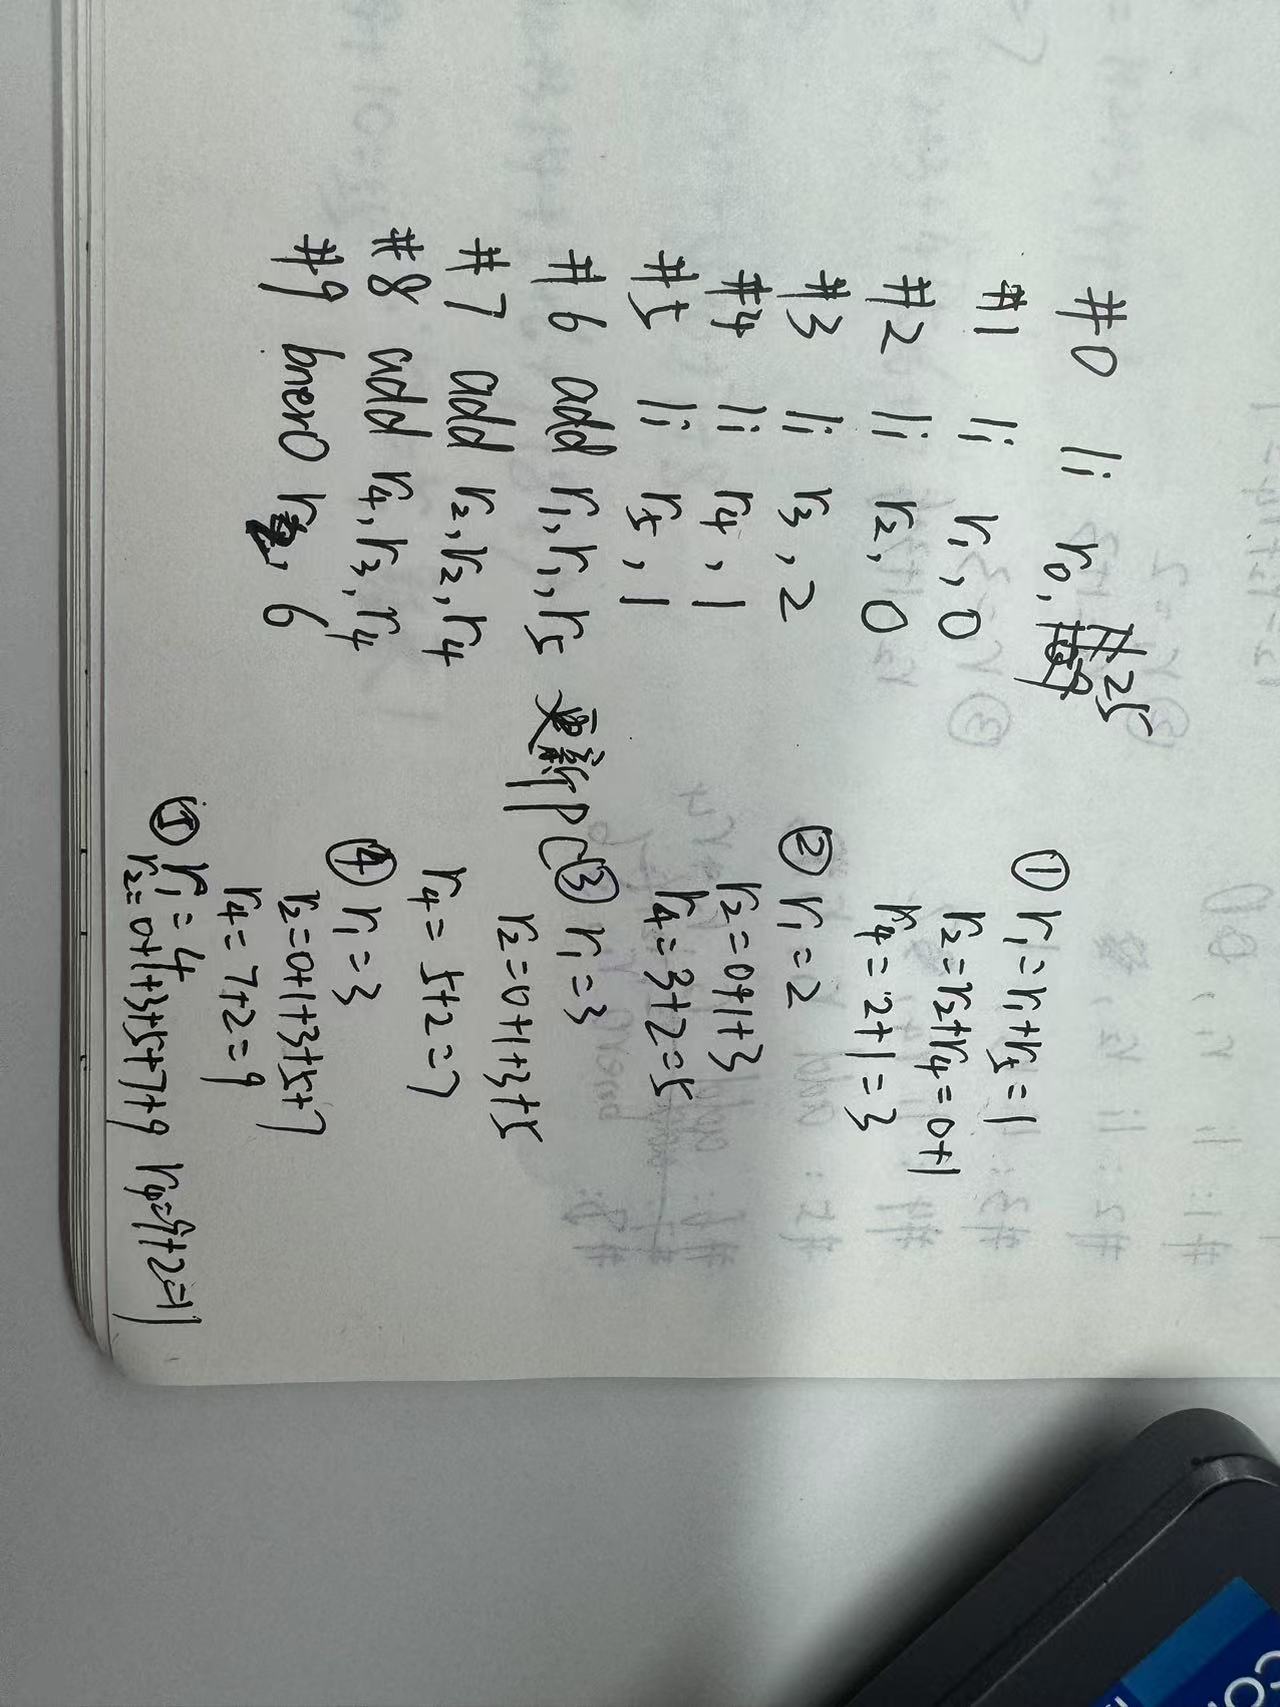 #0 li r0, #25
#1 li r1, 0
#2 li r2, 0
#3 li r3, 2
#4 li r4, 1
#5 li r5, 1
#6 add r1, r1, r5 更新PC
#7 add r2, r2, r4
#8 add r4, r3, r4
#9 bner0 r, 6
① r1=r1+r5=1
r2=r2+r4=0+1
r4=2+1=3
② r1=2
r2=0+1+3
r4=3+2=5
③ r1=3
r2=0+1+3+5
r4=5+2=7
④ r1=3
r2=0+1+3+5+7
r4=7+2=9
⑤ r1=4
r2=0+1+3+5+7+9 r4=9+2=11
CO